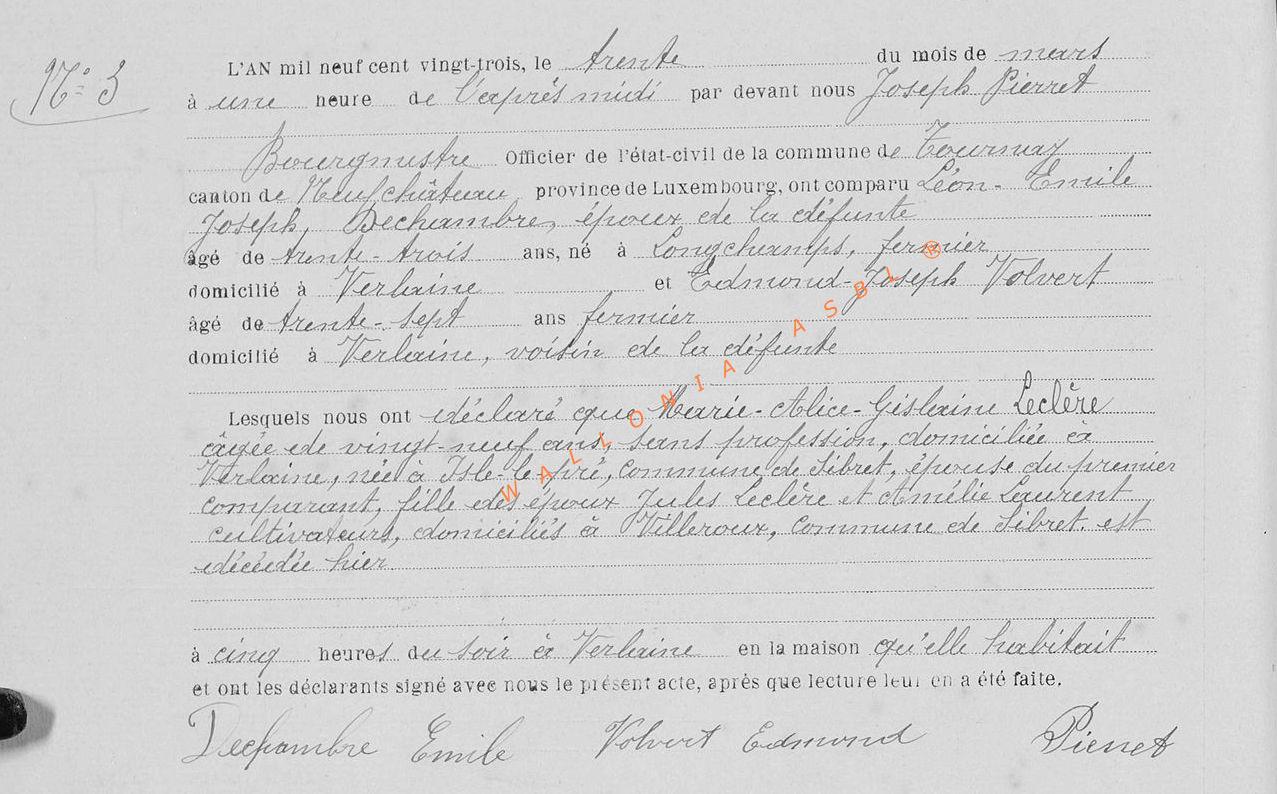 N° 3
L'AN mil neuf cent vingt-trois, le trente du mois de mars
à une heure de l'après midi par devant nous Joseph Pierret
Bourgmestre Officier de l'état-civil de la commune de Tournay
canton de Neufchâteau province de Luxembourg, ont comparu Léon-Emile
Joseph, Dechambre, époux de la défunte
âgé de trente-trois ans, né à Longchamps, fermier
domicilié à Verlaine et Edmond-Joseph Volvert
âgé de trente-sept ans fermier
domicilié à Verlaine, voisin de la défunte
Lesquels nous ont déclaré que Marie-Alice-Gislaine Leclère
âgée de vingt-neuf ans, sans profession, domiciliée à
Verlaine, née à Isle-le-pré, commune de Sibret, épouse du premier
comparant, fille des époux Jules Leclère et Amélie Laurent
cultivateurs, domiciliés à Villeroux, commune de Sibret est
décédée hier
à cinq heures du soir à Verlaine en la maison qu'elle habitait
et ont les déclarants signé avec nous le présent acte, après que lecture leur en a été faite.
Dechambre Emile Volvert Edmond Pierret
WALLONIA ASBL ®